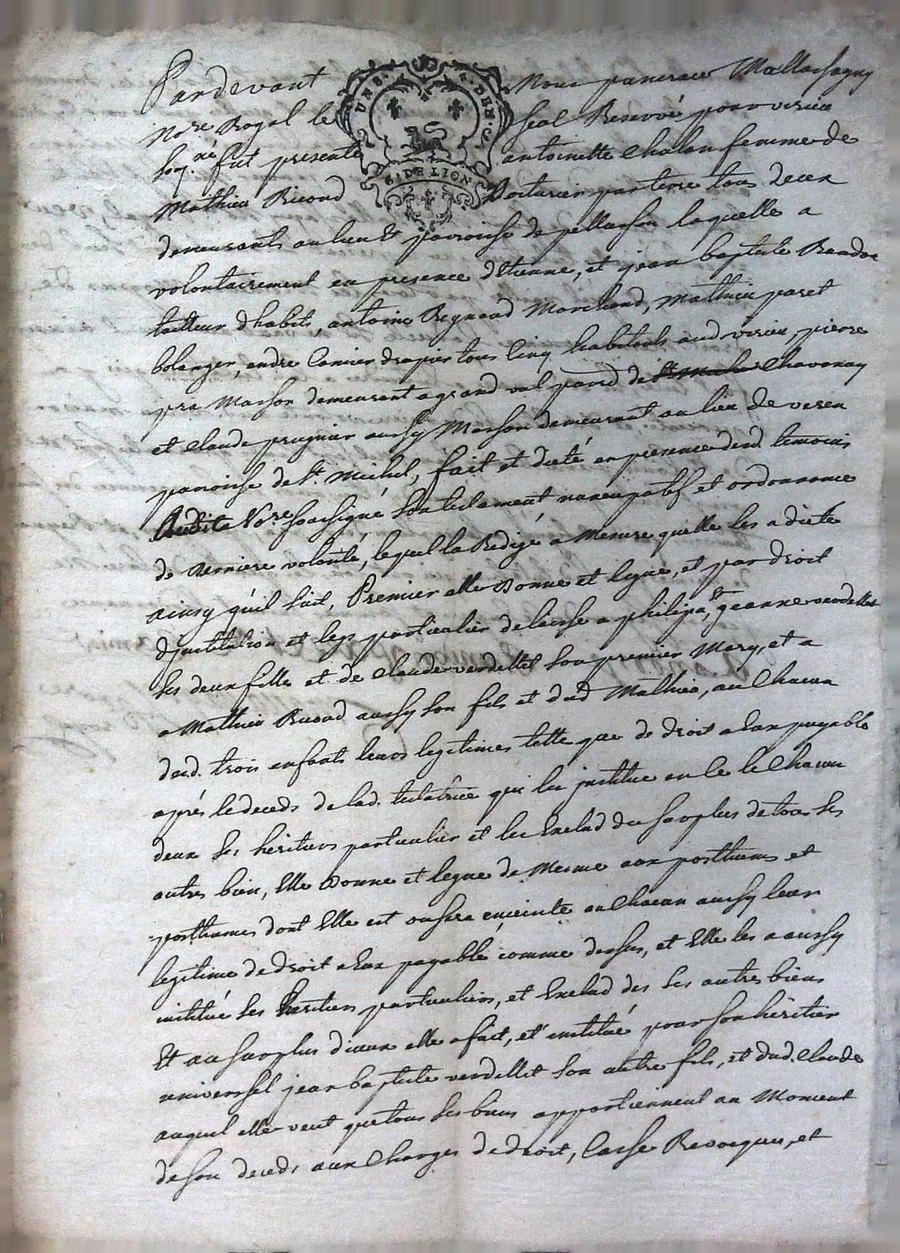 Pardevant Nous pancrace Mallassagny
No.re Royal le seal Reservé pour verin
soq.né fut presente antoinette Chalan femme de
UN S. A.DEN.
G.DE LION
Mathieu Ricoud Voiturier par terre tous deux
demeurants au lieu et parroisse de pellussin laquelle a
volontairement en presence d'Etienne, et jean baptiste
tailleur d'habits, antoine Regnaud Marchand, Mathieu paret
bolanger, andre Camier drapier tous Cinq habitants aud. verin, pierre
pra Masson demeurant a grand val parr.d de Chavanay
et Claude prugnier aussy Masson demeurant au lieu de veren
parroisse de s.t Michel, fait et dicté en presence desd. temoins
Audit No.re soussigné son testament nuncupatif et ordonnance
de derniere volonté, lequel la Redigé a Mesure quelle les a dicte
ainsy qu'il suit, Premier elle Donne et legue, et par droit
d'jnstitution et legs particulier delaisse a philipa, et jeanne verdellet
ses deux filles et de Claude verdellet son premier Mary, et a
a Mathieu Ricoud aussy son fils et dud Mathieu, au Chacun
desd. trois enfants leurs legitimes telle que de droit a eux payable
aprés le deceds de lad. testatrice qui les jnstitue en ce le Chacun
deux ses heritiers particulier et les Exclud du surplus de tous ses
autres bien, Elle Donne et legue de Mesme aux posthumes et
posthumes dont Elle est ou sera enceinte au Chacun aussy leur
legitime de droit a Eux payable comme dessus, et Elle les a aussy
institué ses heritiers particuliers, et Exclud des ses autres biens
Et au surplus d'iceux elle a fait, et institué pour son héritier
universel jean baptiste verdellet son autre fils, et dud. Claude
auquel elle veut que tous ses biens appartiennent au Moment
de son deceds aux Charges de droit, Casse Revocque, et